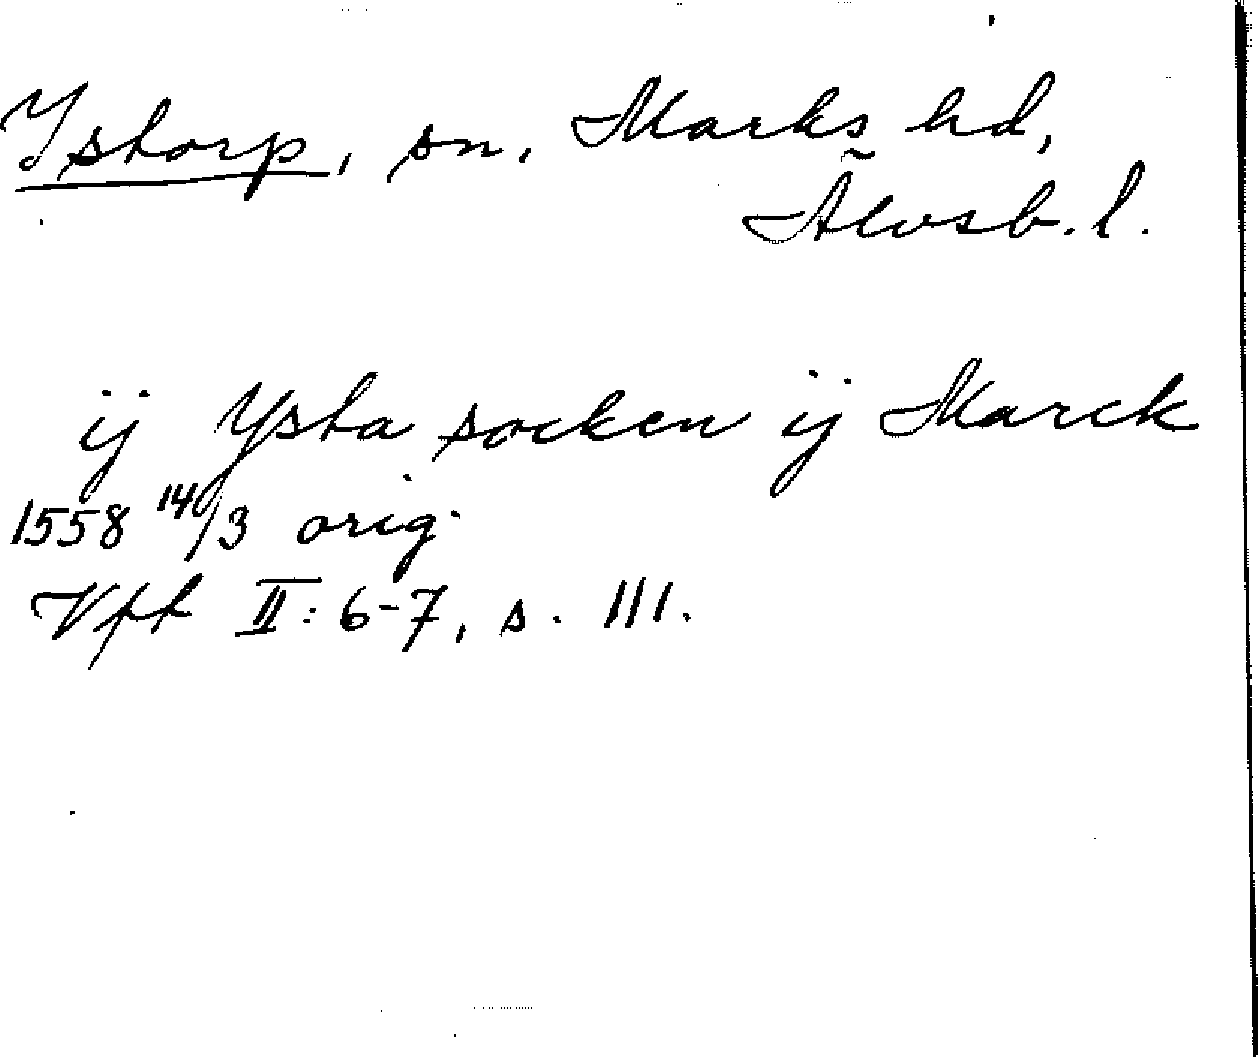 Istorp, sn, Marks hd,
Älvsb. l.
ij Ysta socken ij Marck
1558 14/3 orig.
Vpt II: 6-7, s. 111.